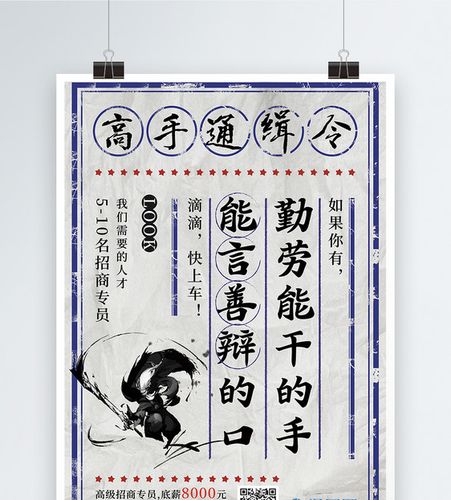 高手通缉令
如果你有，
勤劳能干的手
能言善辩的口
滴滴，快上车！
LOOK
我们需要的人才
5-10名招商专员
高级招商专员,底薪8000元